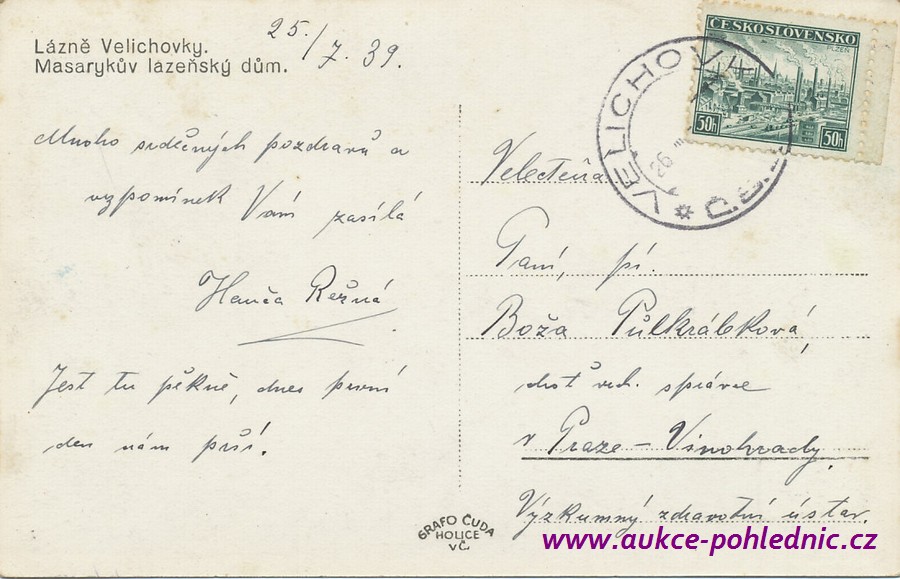 Lázně Velichovky.
Masarykův lazeňský dům.
25./7. 39.
Mnoho srdečných pozdravů a
vzpomínek Vám zasílá
Hanča Režná
Jest tu pěkně, dnes první
den nám prší.
ČESKOSLOVENSKO
PLZEŇ
50h 50h
VELICHOVKY
26
Velectěná
Paní, pí.
Boža Půlkrábková,
choť vrch. správce
v Praze – Vinohrady,
Výzkumný zdravotní ústav.
GRAFO ČUDA
HOLICE
v Č.
www.aukce-pohlednic.cz